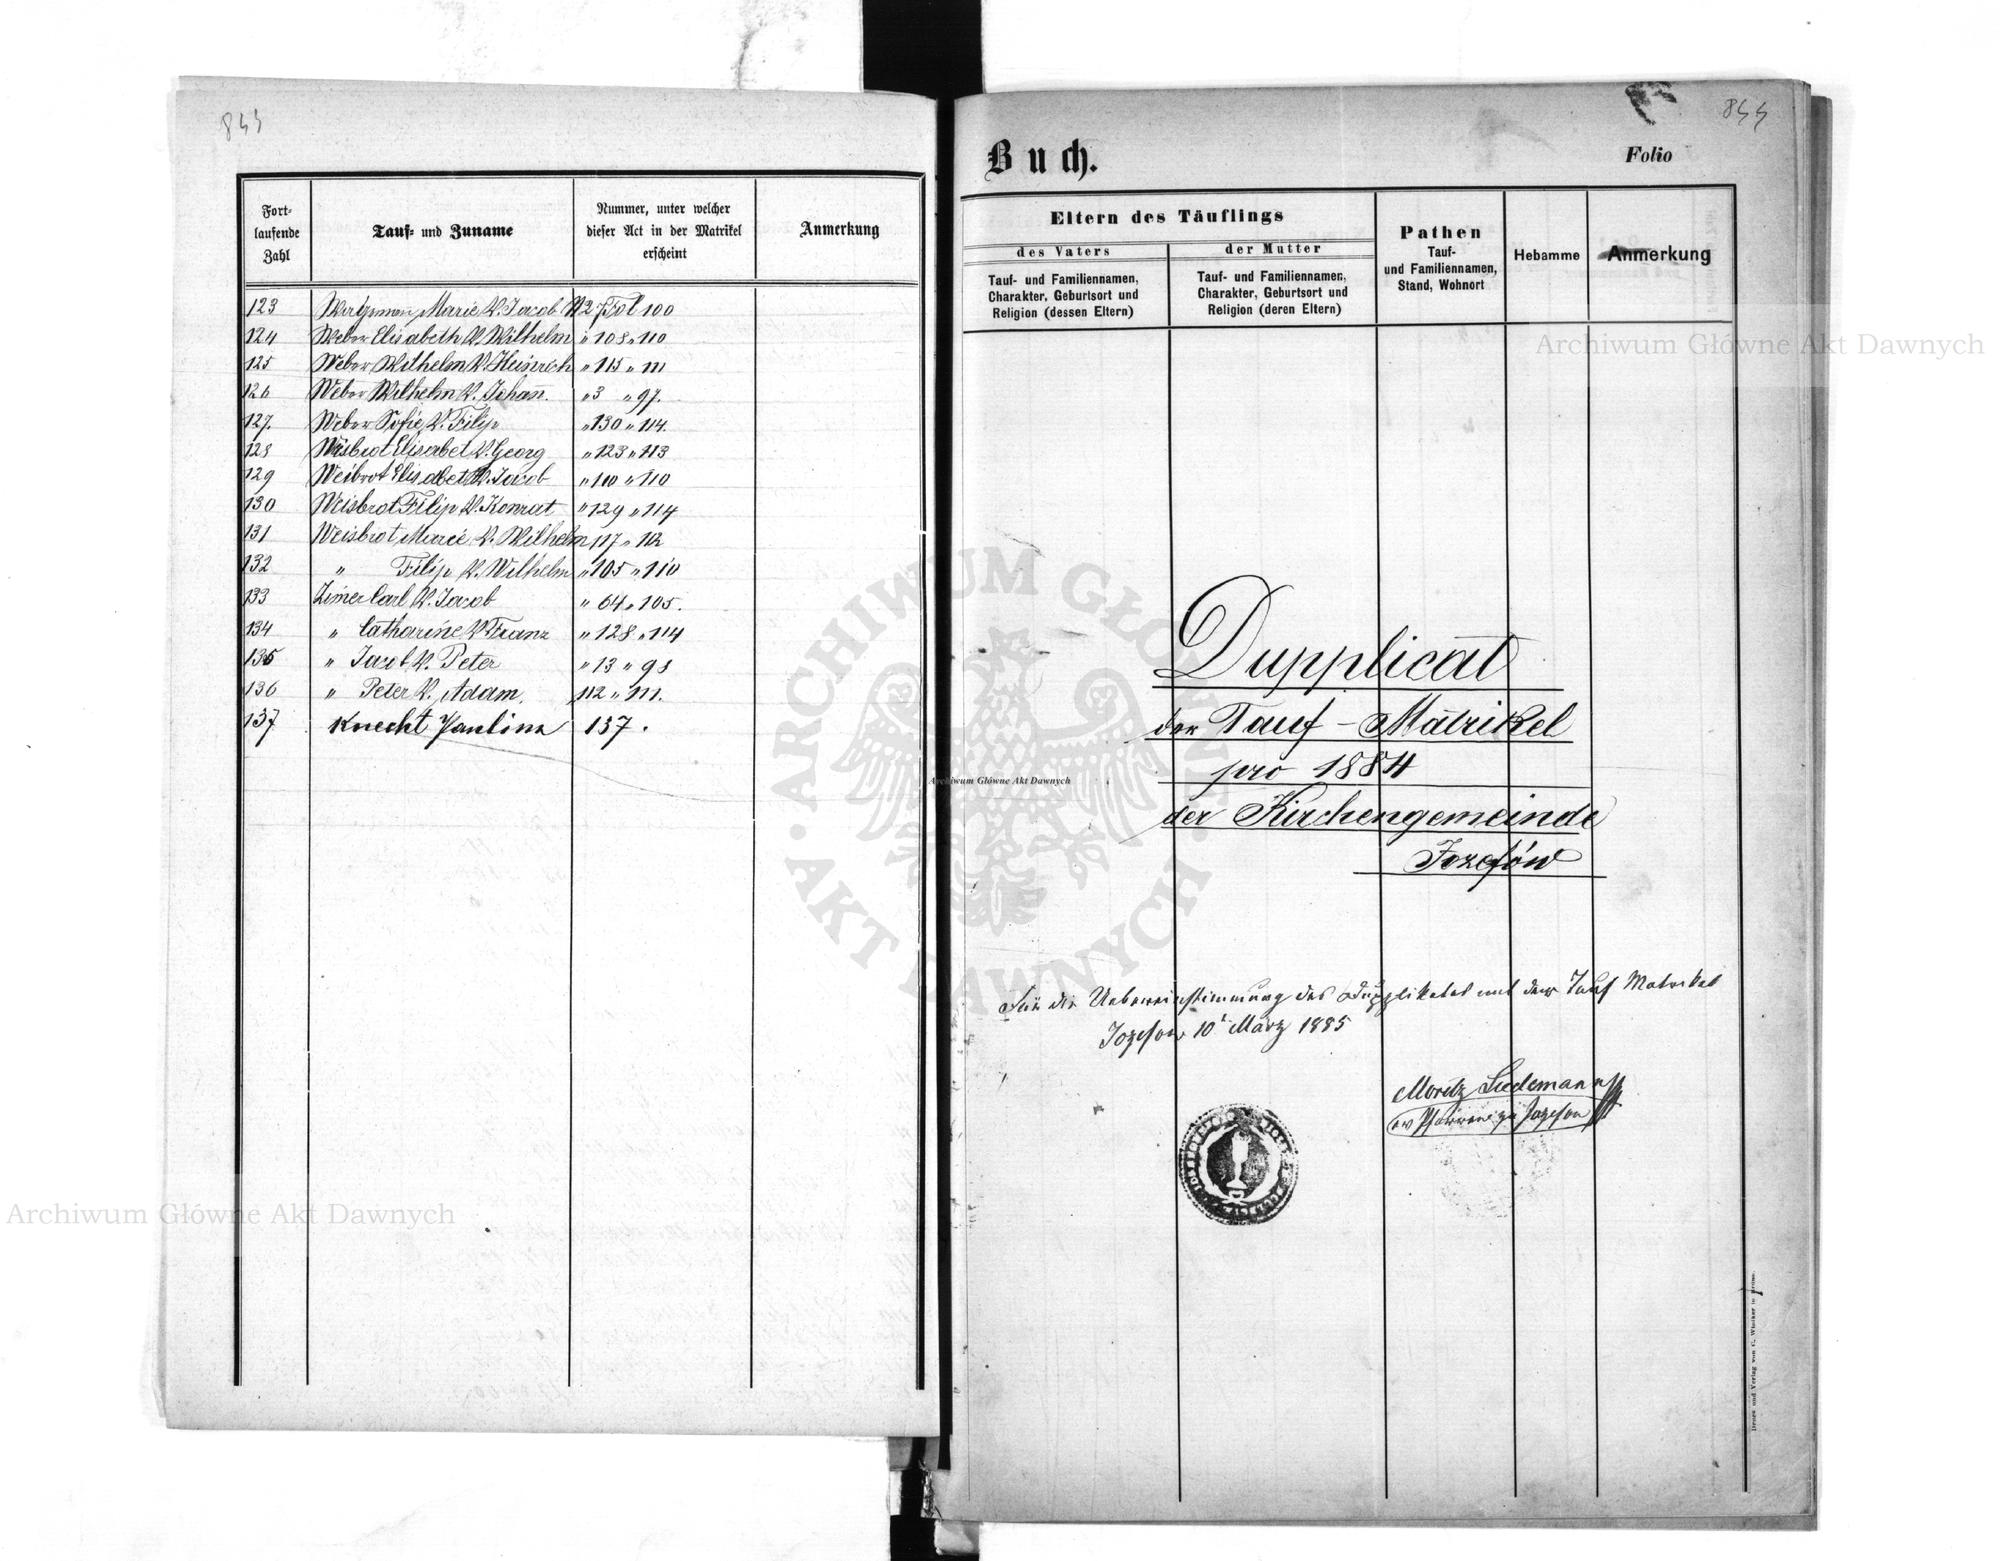 843
Fort-
laufende
Zahl
Tauf- und Zuname
Nummer, unter welcher
dieser Act in der Matrikel
erscheint
Anmerkung
123 Marie V. Jacob N 27 Fol 100
124 Weber Elisabeth V. Wilhelm " 108 " 110
125 Weber Wilhelm V. Heinrich " 115 " 111
126 Weber Wilhelm V. Johan̄. " 3 " 97.
127. Weber Sofie V. Filip " 130 " 114.
128 Weisbrot Elisabet V. Georg " 123 " 113
129 Weibrot Elisabet V. Jacob " 110 " 110
130 Weisbrot Filip V. Konrat " 129 " 114
131 Weisbrot Marie V. Wilhelm 117 " 112
132 " Filip V. Wilhelm " 105 " 110
133 Zimer Carl V. Jacob " 64 " 105.
134 " Catharine V. Franz " 128 " 114
135 " Jacob V. Peter " 13 " 98
136 " Peter V. Adam. 112 " 111.
137 Knecht Paulina 137.
844
Buch.
Folio
Eltern des Täuflings
des Vaters
der Mutter
Tauf- und Familiennamen,
Charakter, Geburtsort und
Religion (dessen Eltern)
Tauf- und Familiennamen,
Charakter, Geburtsort und
Religion (deren Eltern)
Pathen
Tauf-
und Familiennamen,
Stand, Wohnort
Hebamme
Anmerkung
Dupplicat
der Tauf-Matrikel
pro 1884
der Kirchengemeinde
Jozefów
Für die Uebereinstimmung des Dupplikates mit der Tauf Matrikel
Jozefow 10t März 1885
Moritz
ev Pfarrer zu Jozefow
Druck und Verlag von C. in Brünn.
Archiwum Główne Akt Dawnych
Archiwum Główne Akt Dawnych
Archiwum Główne Akt Dawnych
ARCHIWUM GŁÓWNE AKT DAWNYCH